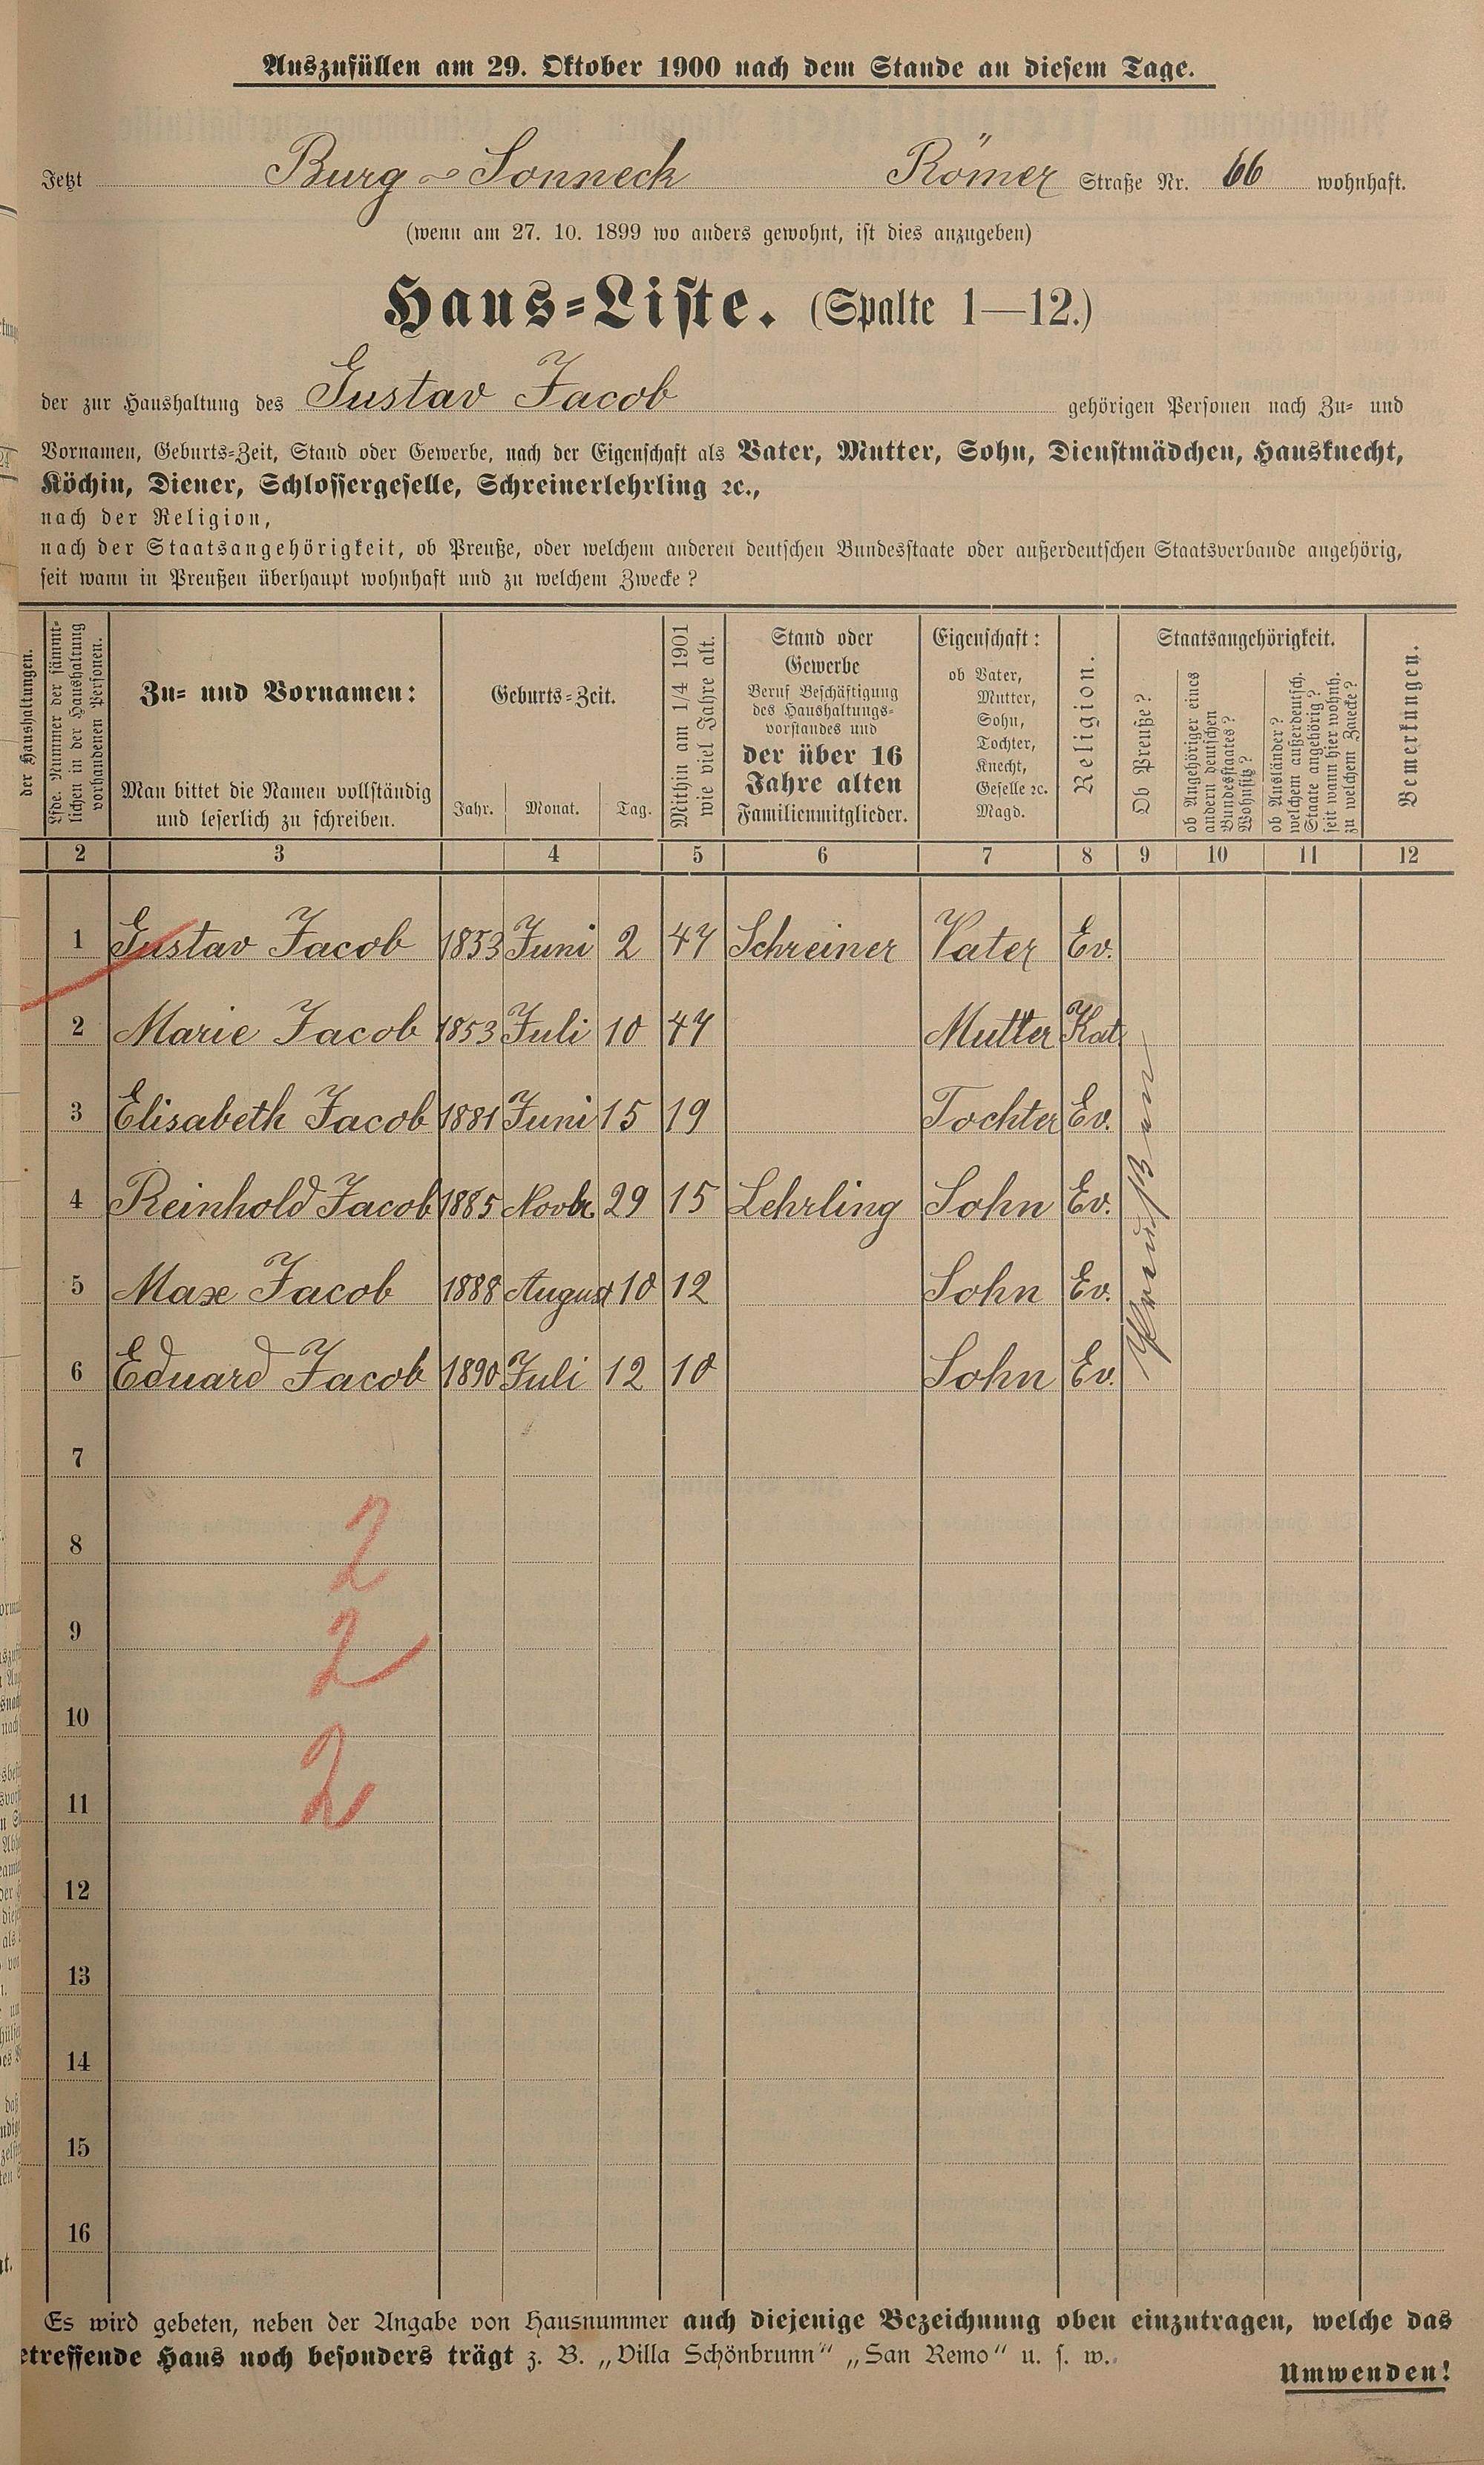 Auszufüllen am 29. Oktober 1900 nach dem Stande an diesem Tage.
Jetzt Burg-Sonneck Römer Straße Nr. 66 wohnhaft.
(wenn am 27. 10. 1899 wo anders gewohnt, ist dies anzugeben)
Haus-Liste. (Spalte 1—12.)
der zur Haushaltung des Gustav Jacob gehörigen Personen nach Zu- und
Vornamen, Geburts-Zeit, Stand oder Gewerbe, nach der Eigenschaft als Vater, Mutter, Sohn, Dienstmädchen, Hausknecht,
Köchin, Diener, Schlossergeselle, Schreinerlehrling ꝛc.,
nach der Religion,
nach der Staatsangehörigkeit, ob Preuße, oder welchem anderen deutschen Bundesstaate oder außerdeutschen Staatsverbande angehörig,
seit wann in Preußen überhaupt wohnhaft und zu welchem Zwecke?
der Haushaltungen.
Lfde. Nummer der sämmt-
lichen in der Haushaltung
vorhandenen Personen.
Zu- und Vornamen:
Man bittet die Namen vollständig
und leserlich zu schreiben.
Geburts-Zeit.
Jahr. Monat. Tag.
Mithin am 1/4 1901
wie viel Jahre alt.
Stand oder
Gewerbe
Beruf Beschäftigung
des Haushaltungs-
vorstandes und
der über 16
Jahre alten
Familienmitglieder.
Eigenschaft:
ob Vater,
Mutter,
Sohn,
Tochter,
Knecht,
Geselle ꝛc.
Magd.
Religion.
Staatsangehörigkeit.
Ob Preuße?
ob Angehöriger eines
andern deutschen
Bundesstaates?
Wohnsitz?
ob Ausländer?
welchem außerdeutsch.
Staate angehörig?
seit wann hier wohnh.
zu welchem Zwecke?
Bemerkungen.
2 3 4 5 6 7 8 9 10 11 12
1 Gustav Jacob 1853 Juni 2 47 Schreiner Vater Ev.
2 Marie Jacob 1853 Juli 10 47 Mutter Kat
3 Elisabeth Jacob 1881 Juni 15 19 Tochter Ev.
4 Reinhold Jacob 1885 Novbr. 29 15 Lehrling Sohn Ev.
5 Max Jacob 1888 August 10 12 Sohn Ev.
6 Eduard Jacob 1890 Juli 12 10 Sohn Ev.
Preußen
7
8
2
9
2
10
11
2
12
13
14
15
16
Es wird gebeten, neben der Angabe von Hausnummer auch diejenige Bezeichnung oben einzutragen, welche das
etreffende Haus noch besonders trägt z. B. „Villa Schönbrunn" „San Remo" u. s. w.
Umwenden!